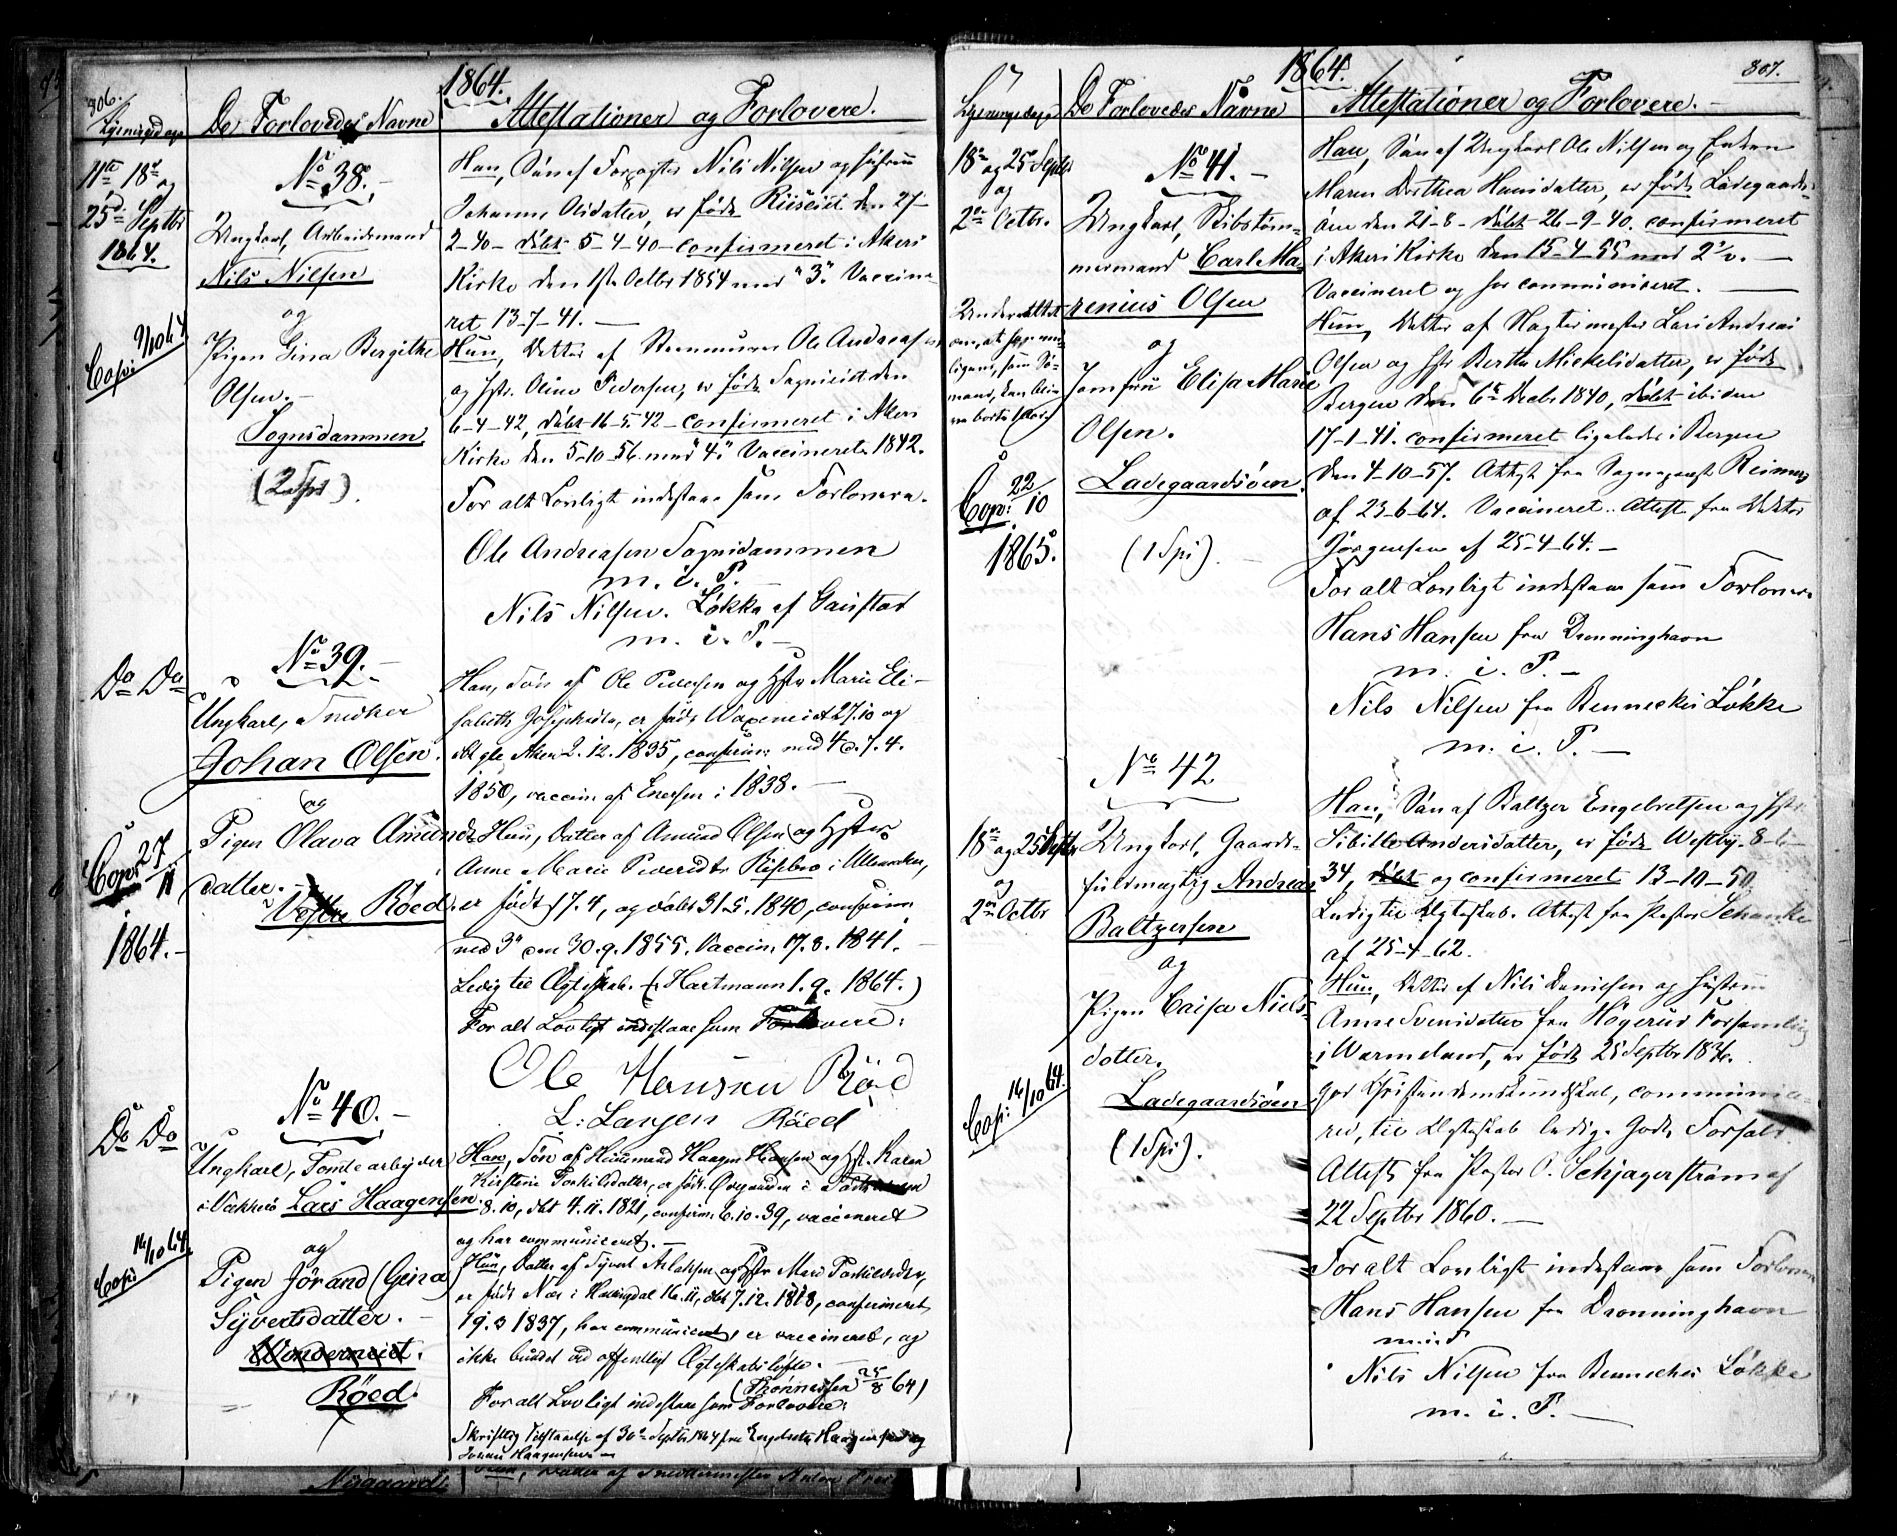 306.
1864.
De Forlovedes Navne
Attestationer og Forlovere.
11te, 18de og
25de Septbr
1864.
No 38.
Ungkarl, Arbeidsmand
Nils Nilsen
og
Pigen Gina Bergitte
Olsen.
Sognsdammen
(2 Spd).
Copi: 9/10 64
Han, Søn af Forpagter Nils Nilsen og Hustru
Johanne Olsdatter, er født Riiseiet den 27-
2-40- døbt 5-4-40- confirmeret i Akers
Kirke den 1ste Octbr 1854 med "3." Vaccine-
ret 13-7-41.
Hun, Datter af Ole Andreasen
og Hstr. Oline Pedersen, er født den
6-4-42, døbt 16-5-42- confirmeret i Akers
Kirke den 5-10-56 med "4" Vaccineret 1842.
For alt Lovligt indestaae som Forlovere.
Ole Andreasen Sognsdammen
m. i. P.
Nils Nilsen. Løkka af Gaustad
m. i. P.
Do Do
No 39.
Ungkarl, Snedker
Johan Olsen.
og
Pigen Olava Amunds
datter.
Vestre Røed.
Copi: 27/11
1864.
Han, Søn af Ole Pedersen og Hstr Marie Eli-
sabeth Josephsdtr, er født 27.10 og
dbt gle Aker 2.12.1835, confirm: med 4 d. 7.4.
1850, vaccin af Enersen i 1838.
Hun, Datter af Amund Olsen og Hstr
Anne Marie Pedersdtr i Ullensaker,
er født 17.4, og døbt 31.5.1840, confirm
med 3" den 30.9.1855. Vaccin. 17.8.1841.
Ledig til Ægteskab. (Hartmann 1.9.1864.)
For alt Lovligt indestaae som Forlovere:
Ole Hansen Röed
L: Larsen Röed
Do Do
No 40.
Ungkarl, Tomtearbeider
i Vækkerø Lars Haagensen.
og
Pigen Jørand (Gina)
Syvertsdatter.
Røed.
Copi: 16/10 64.
Han, Søn af Huusmand Haagen Hansen og Hst. Karen
Kirstine Torkildsdatter, er født i
8.10, dbt 4.11.1821, confirm: 6.10.39, vaccineret
og har communiceret.
Hun, Datter af Syvert Aslaksen og Hstr Mari Torkildsdtr,
er født Næs i Hallingdal 16.11, dbt 7.12.1818, confirmeret
19.3 1837, har communiceret, er vaccineret, og
ikke bundet ved offentligt Ægteskabsløfte.
25/8 64)
For alt Lovligt indestaae som Forlovere:
Skriftlig Tilstaaelse af 30te Septbr 1864 fra Haagensen og
Haagensen
307.
1864.
Lysningsdage
De Forlovedes Navne
Attestationer og Forlovere.
18de og 25de Septbr
og
2den Octbr.
No 41.
Ungkarl, Skibstøm-
mermand Carl Ma-
renius Olsen
og
Jomfru Elisa Marie
Olsen.
Ladegaardsøen.
(1 Spd).
Copi: 22/10
1865.
Han, Søn af Ungkarl Ole Nilsen og Enken
Maren Dorthea Hansdatter, er født Ladegaards-
øen den 21-8- døbt 26-9-40. confirmeret
i Akers Kirke den 15-4-55 med 2½.
Vaccineret og har communiceret.
Hun, Datter af Lars Andreas
Olsen og Hstr Bertha Mickelsdatter, er født
Bergen den 6te Decbr 1840, døbt ibidem
17-1-41. confirmeret ligeledes i Bergen
den 4-10-57. Attest fra Sognepræst Reimers
af 23-6-64. Vaccineret. Attest fra Doktor
Jørgensen af 25-4-64.
For alt Lovligt indestaae som Forlovere
Hans Hansen fra Dronninghavn
m. i. P.
Nils Nilsen fra Benneches Løkke
m. i. P.
18de og 25 Septbr
og
2den Octbr
No 42
Ungkarl, Gaards-
fuldmægtig Andreas
Baltzersen
og
Pigen Caisa Niels-
datter.
Ladegaardsøen
(1 Spd).
Copi: 16/10 64.
Han, Søn af Baltzer Engebretsen og Hstr
Sibille Andersdatter, er født Westby 8-6-
34, døbt og confirmeret 13-10-50,
Ledig til Ægteskab. Attest fra Pastor Schanke
af 25-4-62.
Hun, Datter af Nils Danielsen og Hustru
Anne Svensdatter fra Høgerud Forsamling
i Wermeland, er født 25 Septbr
god Christendomskundskab, communice-
ret, til Ægteskab ledig. Godt Forhold.
Attest fra Pastor O. Schjagerstrøm af
22 Septbr 1860.
For alt Lovligt indestaae som Forlovere
Hans Hansen fra Dronninghavn
m. i. P
Nils Nilsen fra Benneches Løkke
m. i. P.